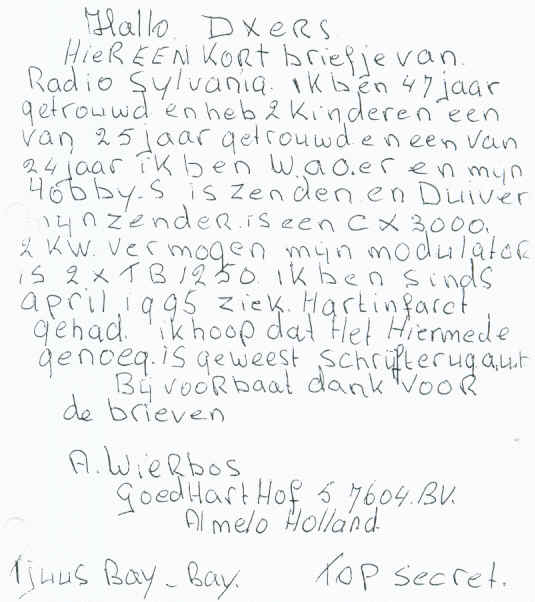 Hallo DXers.
HieR EEN KoRt briefje van.
Radio Sylvania. ik ben 47 jaar
getrouwd en heb 2 Kinderen een
van 25 jaar getrouwd en een van
24 jaar ik ben W.a.o.er en mijn
Hobby.S is zenden en Duiver
mijn zendeR. is een CX 3000.
2 KW. vermogen mijn modulatoR
is 2.x TB 1250. ik ben sinds
april 1995 ziek. Hartinfarct
gehad. ik hoop dat Het Hiermede
genoeg. is geweest schrijf terug a.u.t
Bij vooRbaat dank voor
de brieven
A. WieRbos
GoedHart Hof 5 7604. BV.
Almelo Holland.
Tjuus Bay - Bay. Top secret.